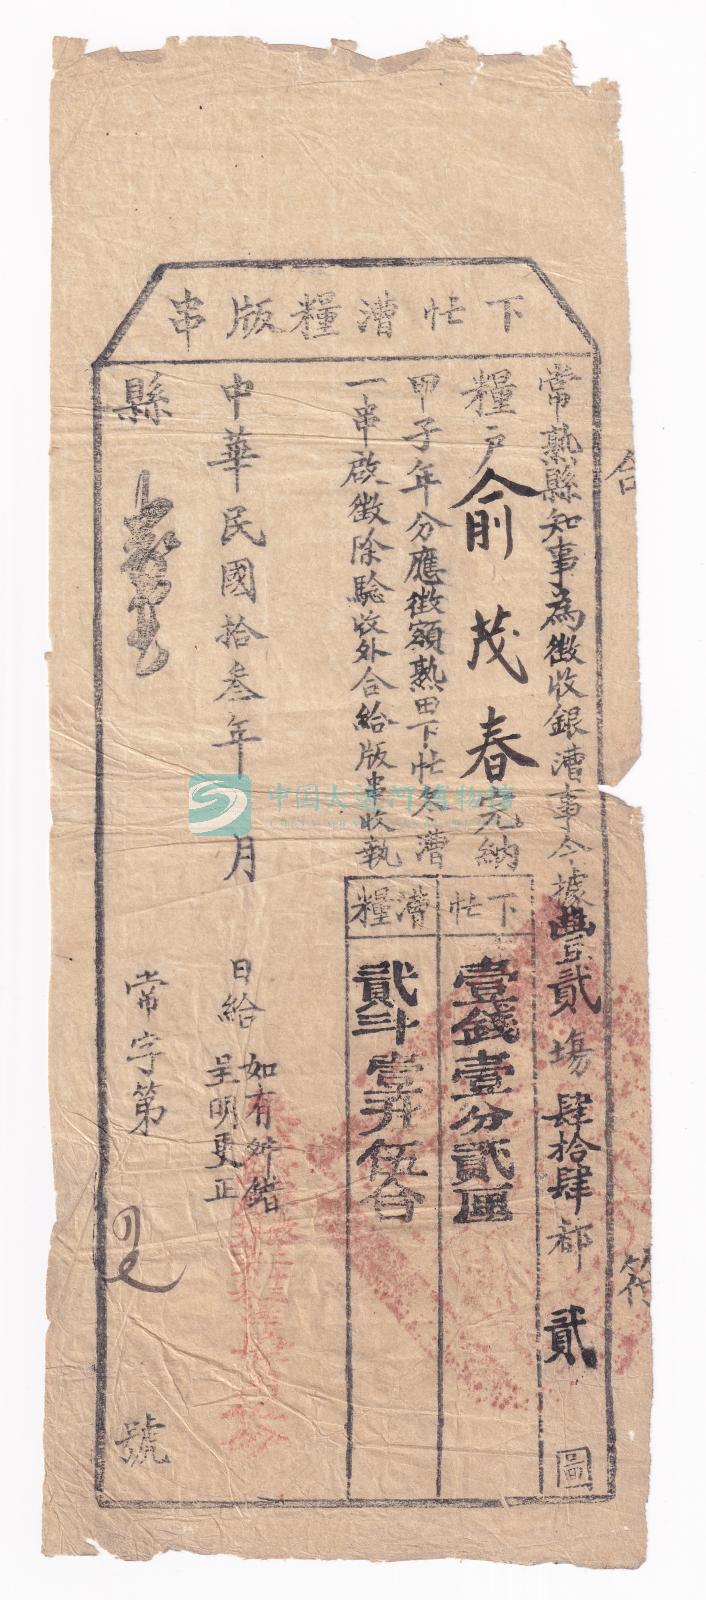 下忙漕糧版串
合
符
常熟縣知事為徵收銀漕事今據豐貳塲肆拾肆都貳圖
糧戶俞茂春完納
甲子年分應徵額熟田下忙冬漕
一串啟徵除驗收外合給版串收執
下忙
壹錢壹分貳厘
漕糧
貳斗壹升伍合
中華民國拾叁年 月 日給
如有舛錯
呈明更正
縣
常字第 號
中国大运河博物馆